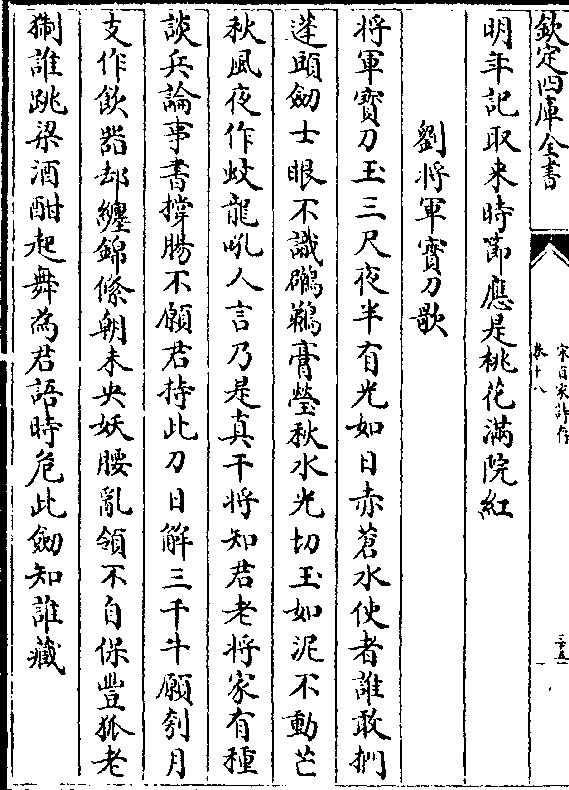 欽定四庫全書
宋百家詩存
卷十八
三十五
明年記取来時節應是桃花滿院紅
劉將軍寶刀歌
將軍寶刀玉三尺夜半有光如日赤蒼水使者誰敢捫
蓬頭劒士眼不識鸊鵜膏瑩秋水光切玉如泥不動芒
秋風夜作蛟龍吼人言乃是真干將知君老將家有種
談兵論事書撐腸不願君持此刀日解三千牛願刳月
支作飲器却纏錦絛朝未央妖腰亂領不自保豐狐老
猘誰跳梁酒酣起舞為君語時危此劒知誰藏